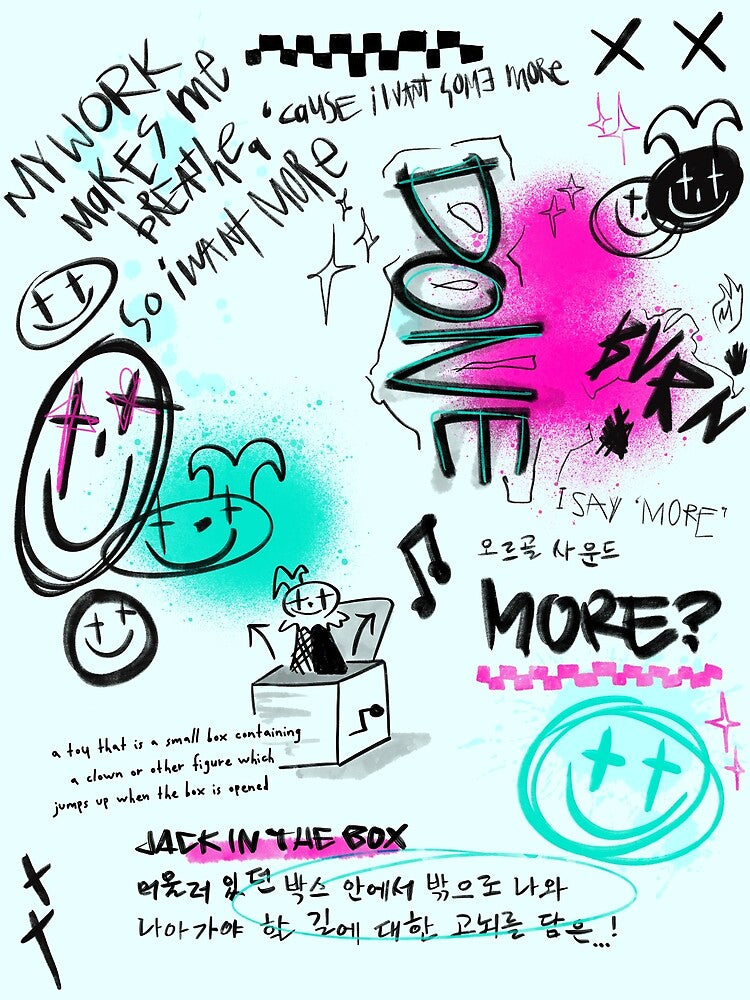 MY WORK
MAKES ME
BREATHE,
SO I WANT MORE
'CAUSE I WANT SOME MORE
DONE
BURN
I SAY 'MORE"
오르골 사운드
MORE?
a toy that is a small box containing
a clown or other figure which
jumps up when the box is opened
JACK IN THE BOX
머뭇러 있던 박스 안에서 밖으로 나와
나아가야 할 길에 대한 고뇌를 담은...!